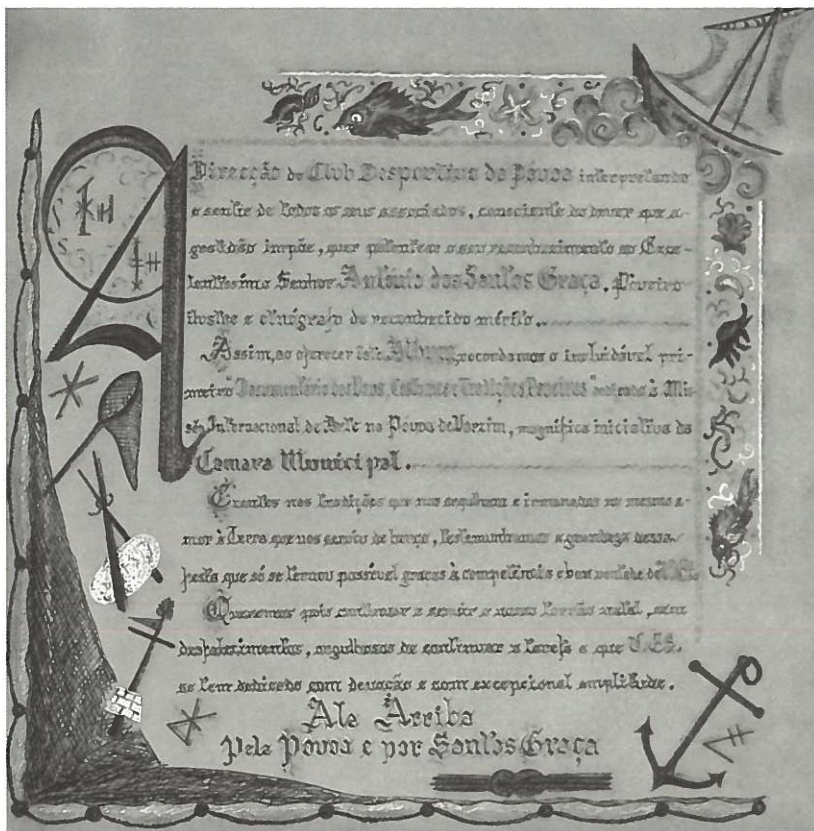 A Direcção do Club Desportivo da Póvoa interpretando
o sentir de todos os seus associados, consciente do dever que a
gratidão impõe, quer patentear o seu reconhecimento ao Exce-
lentíssimo Senhor António dos Santos Graça, Poveiro
ilustre e etnógrafo de reconhecido mérito..
Assim, ao oferecer este Album, recordamos o inolvidável pri-
meiro "Documentário dos Usos, Costumes e Tradições Poveiras" dedicado à Mis-
são Internacional de Arte na Póvoa de Varzim, magnífica iniciativa da
Camara Municipal.
Crentes nas tradições que nos orgulham e irmanados no mesmo a-
mor à Terra que nos serviu de berço, testemunhamos a grandeza dessa
que só se tornou possível graças à competência e boa vontade de
Queremos pois continuar a servir o nosso torrão natal, sem
desfalecimentos, orgulhosos de continuar a tarefa a que V. Exª.
se tem dedicado com devoção e com excepcional amplitude.
Ala Arriba
Pela Póvoa e por Santos Graça